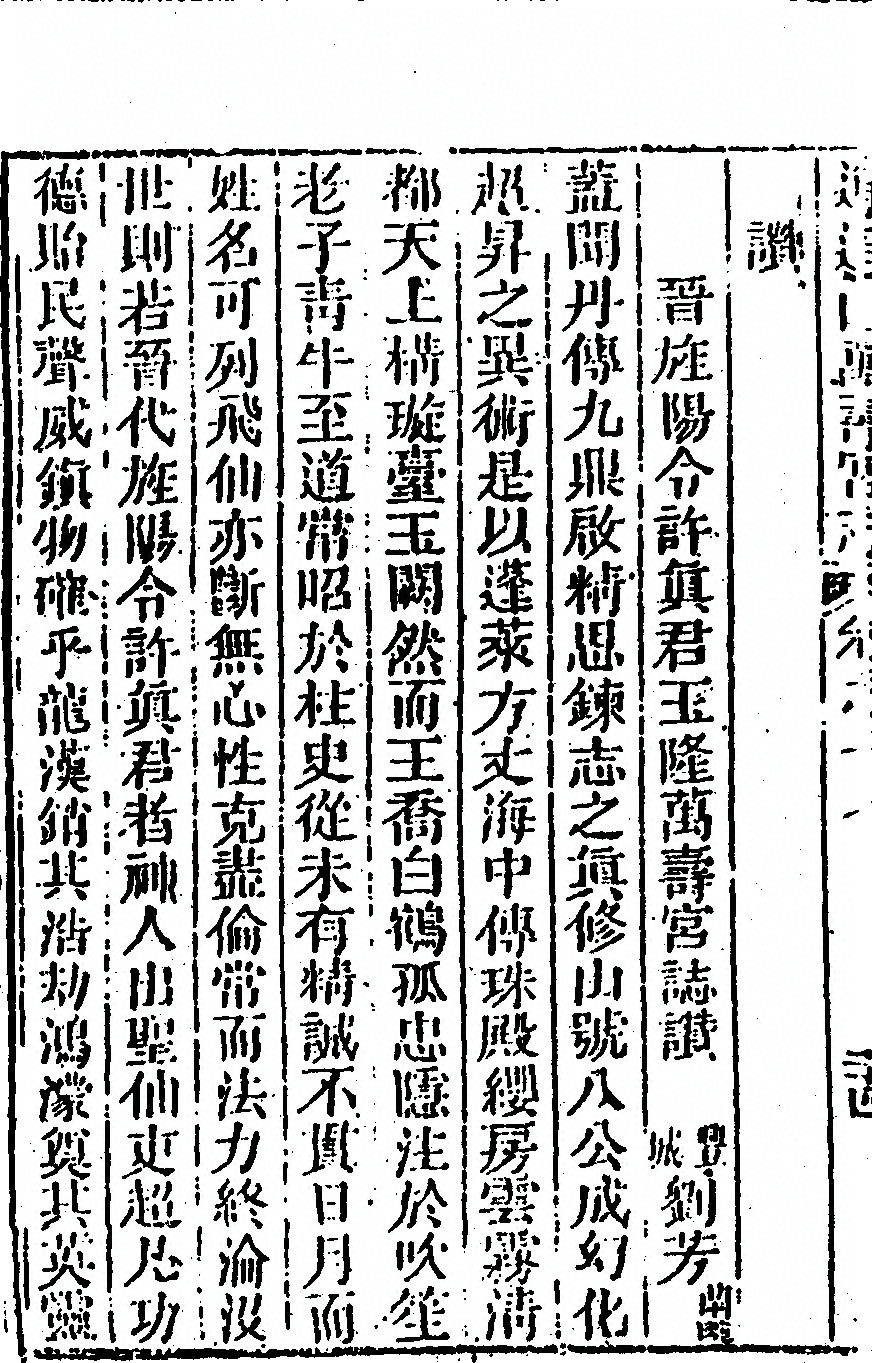 讚
晉旌陽令許眞君玉隆萬壽宮誌讚 豐城 劉芳
蓋聞丹傳九鼎啟精思鍊志之眞修山號八公成幻化
超昇之異術是以蓬萊方丈海中傳珠殿纓房雲霧清
都天上構璇臺玉闕然而王喬白鶴孤忠隱注於吹笙
老子靑牛至道常昭於柱史從未有精誠不貫日月而
姓名可列飛仙亦斷無心性克盡倫常而法力終淪沒
世則若晉代旌陽令許眞君者神人出聖仙吏超凡功
德貽民聲威鎮物確乎龍漢銷其浩劫鴻濛奠其英靈